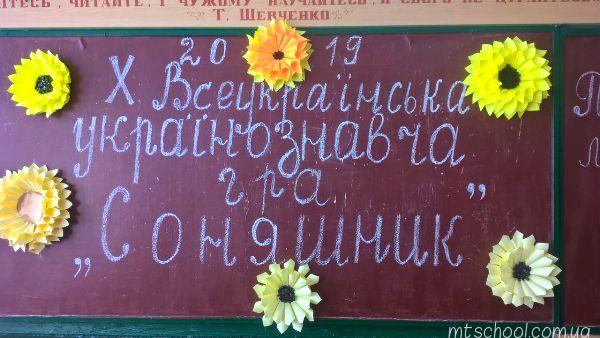 ТЕСЬ, ЧИТАЙТЕ, І ЧУЖОМУ НАУЧАЙТЕСЬ, Й СВОГО НЕ ЦУРАЙТЕСЬ
Т. ШЕВЧЕНКО
20 19
X Всеукраїнська
українознавча
гра
„Соняшник”
mtschool.com.ua